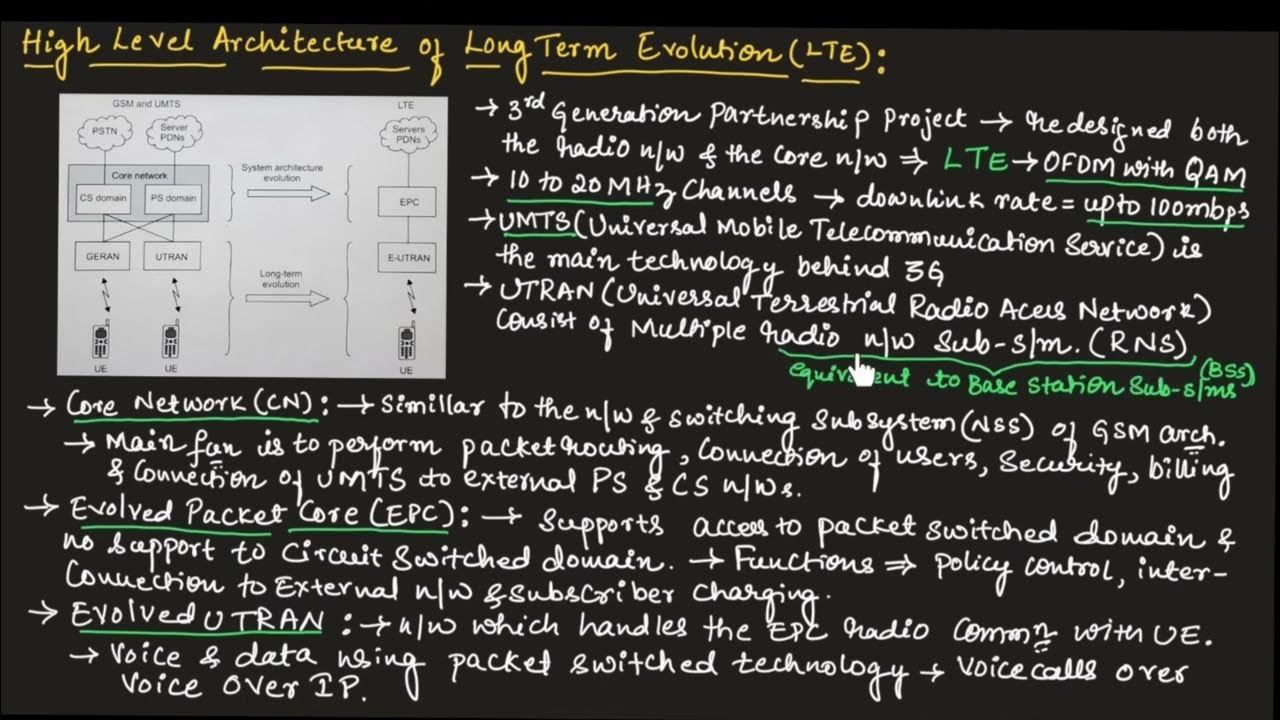 High Level Architecture of Long Term Evolution (LTE):
GSM and UMTS
LTE
PSTN
Server PDNs
Servers PDNs
Core network
CS domain
PS domain
System architecture
evolution
EPC
GERAN
UTRAN
Long-term
evolution
E-UTRAN
UE
UE
UE
→ 3rd Generation Partnership Project → Redesigned both
the Radio n/w & the Core n/w ⇒ LTE → OFDM with QAM
→ 10 to 20 MHz Channels → downlink rate = upto 100mbps
→ UMTS (Universal Mobile Telecommunication Service) is
the main technology behind 3G
→ UTRAN (Universal Terrestrial Radio Acess Network)
Consist of Multiple Radio n/w Sub-s/m. (RNS)
equivalent to Base Station Sub-s/ms (BSS)
→ Core Network (CN): → Simillar to the n/w & switching Subsystem (NSS) of GSM arch.
→ Main fun is to perform packet routing, Connection of users, Security, billing
& Connection of UMTS to external PS & CS n/ws.
→ Evolved Packet Core (EPC): → Supports access to packet switched domain &
no support to Circuit Switched domain. → Functions ⇒ policy control, inter-
Connection to External n/w & subscriber charging.
→ Evolved UTRAN: → n/w which handles the EPC Radio Commn with UE.
→ Voice & data using packet switched technology → Voice calls over
Voice Over IP.